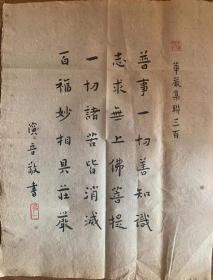 華嚴集聯三百
普事一切善知識
志求無上佛菩提
一切諸苦皆消滅
百福妙相具莊嚴
演音敬書